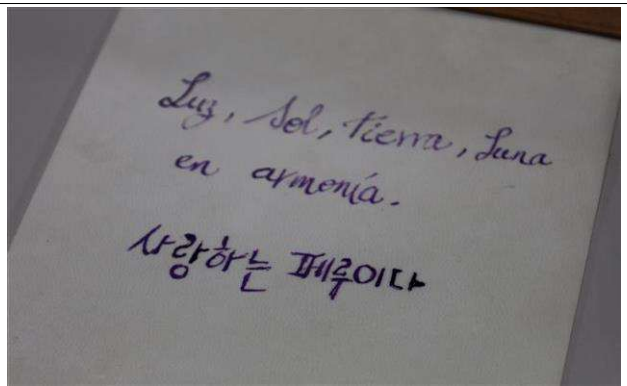 Luz, Sol, tierra, Luna
en armonía.
사랑하는 페루이다